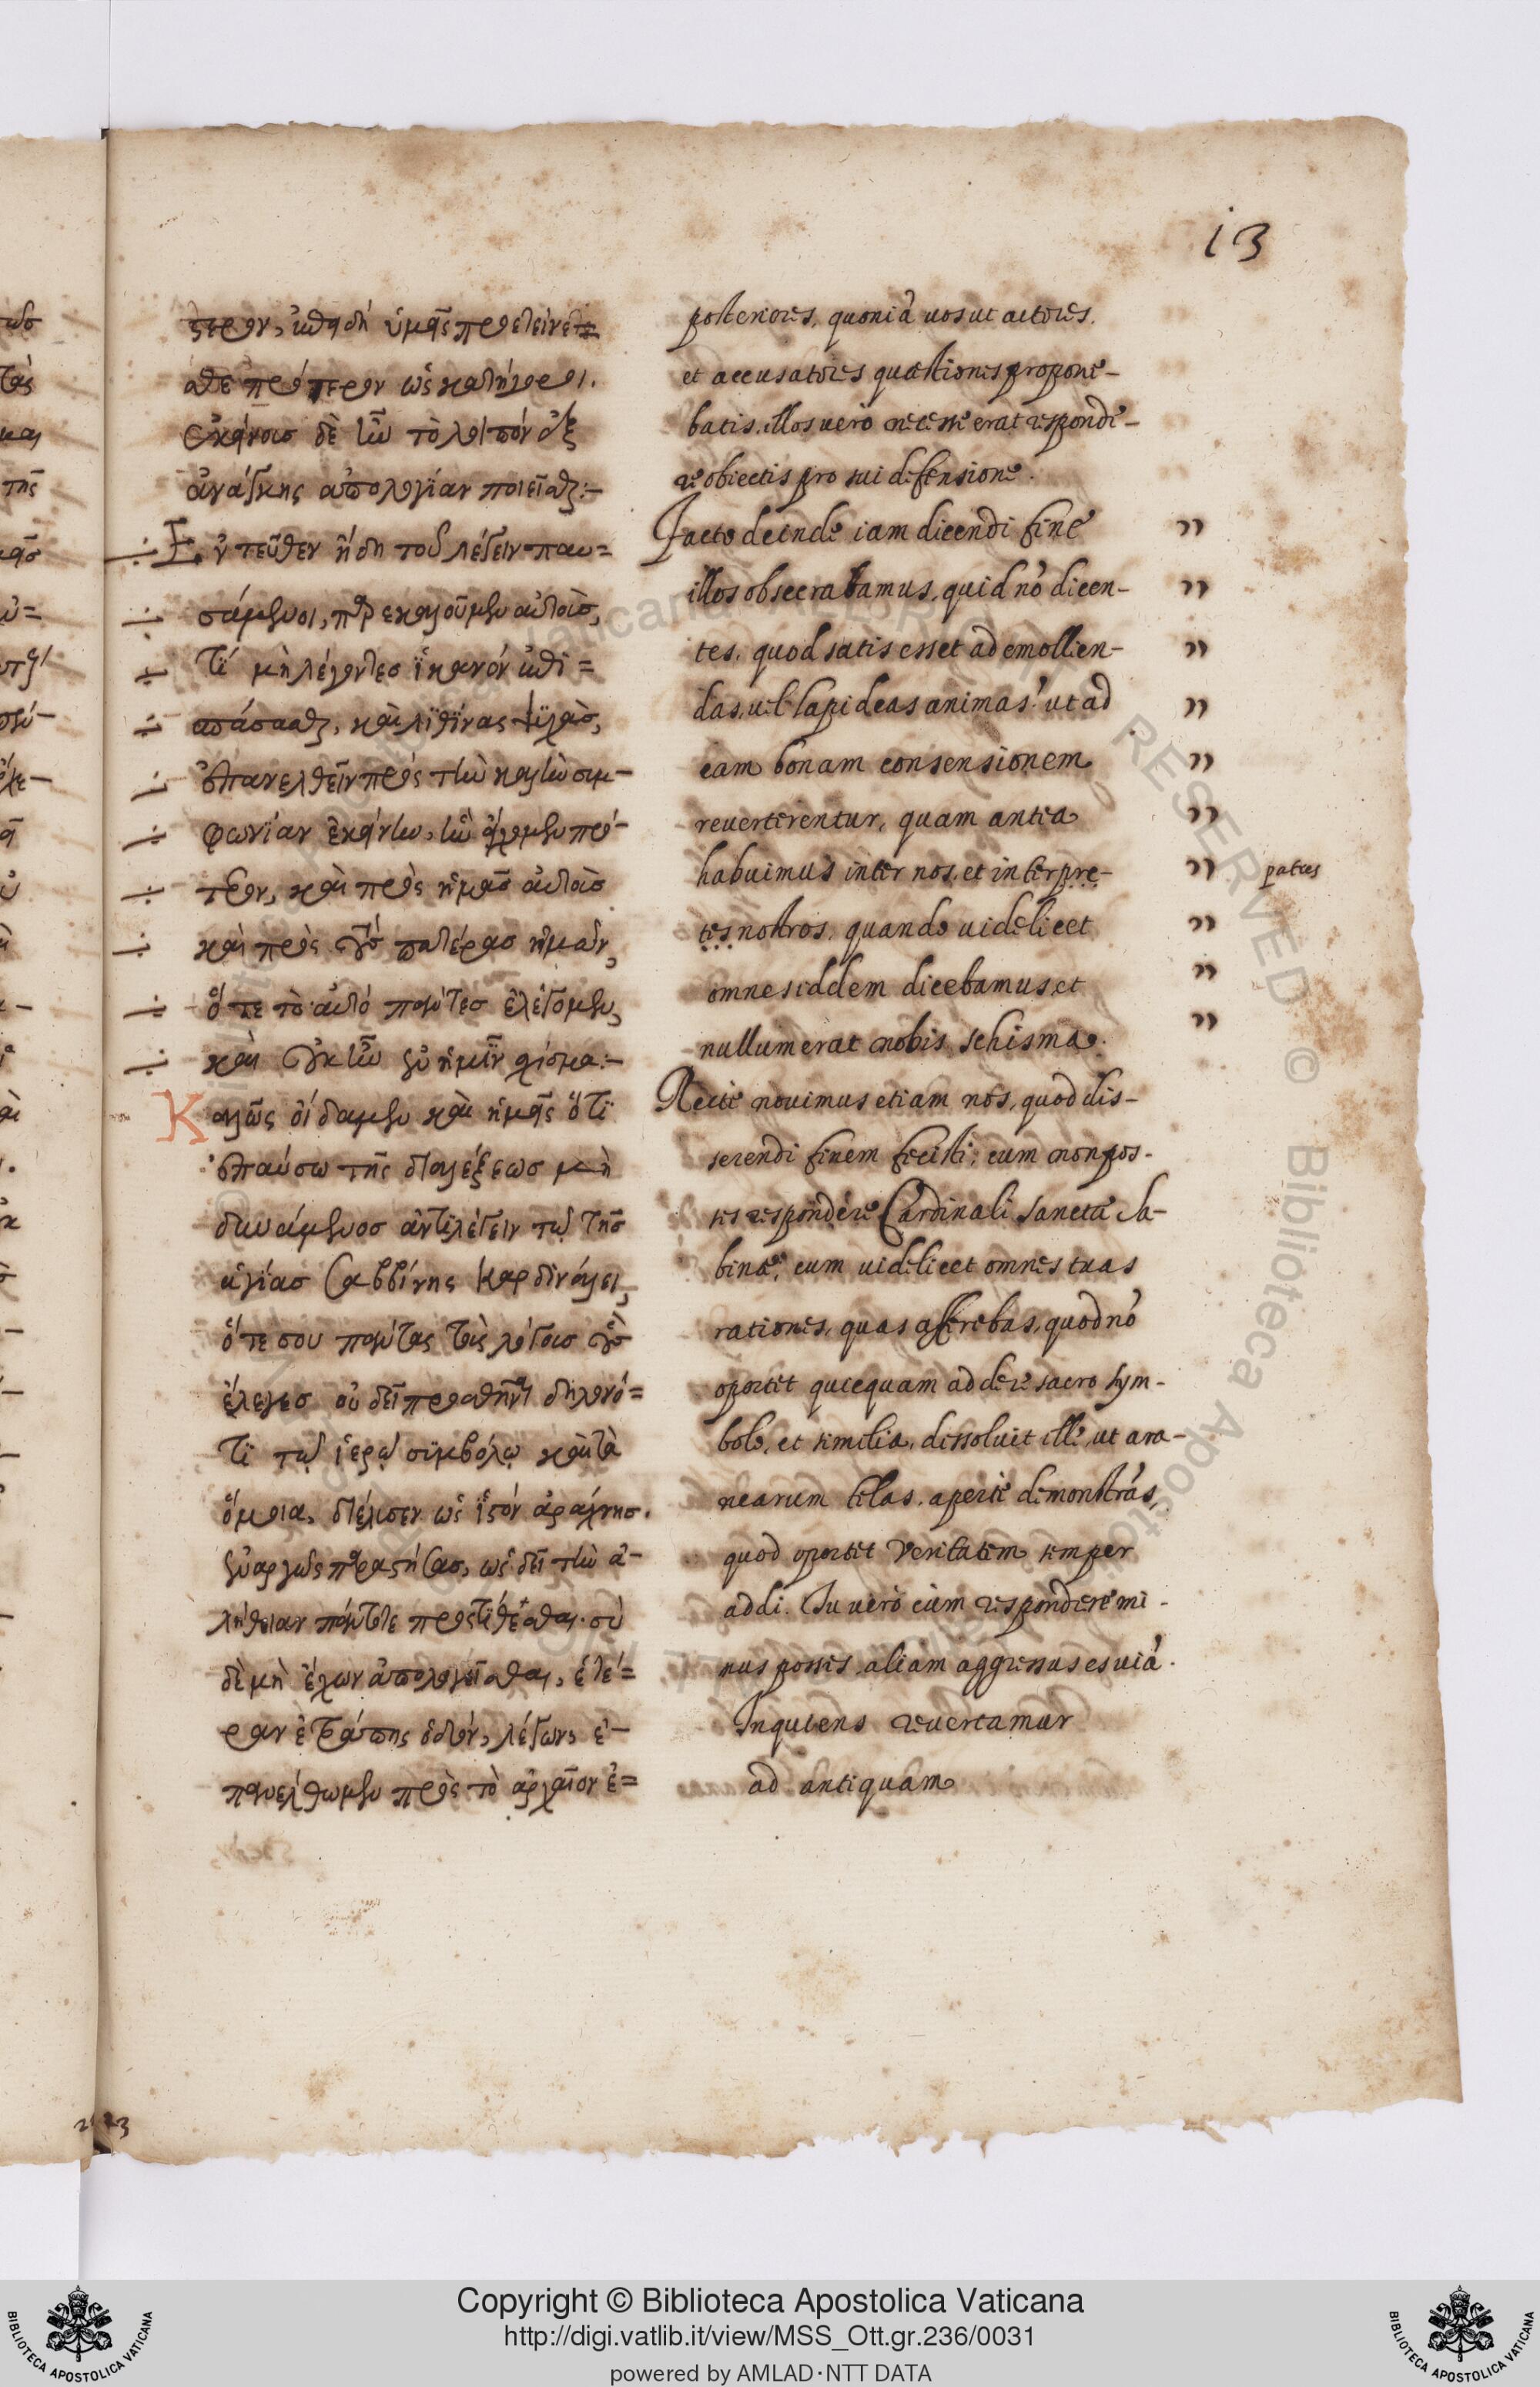 13
ςερον, ἐπειδὴ ὑμεῖς προετείνε=
σθε πρότερον ὡς κατήγοροι.
ἐκείνοις δὲ ἦν τὸ λοιπὸν ἐξ
ἀνάγκης ἀπολογίαν ποιεῖσθαι:-
Ἐντεῦθεν ἤδη τοῦ λέγειν παυ=
σάμενοι, παρεκαλοῦμεν αὐτοὺς,
τί μὴ λέγοντες ἱκανὸν ἐπι=
σπάσασθαι, καὶ λιθίνας ψυχὰς,
ἐπανελθεῖν πρὸς τὴν καλὴν συμ-
φωνίαν ἐκείνην, ἣν εἴχομεν πρό-
τερον, καὶ πρὸς ἡμᾶς αὐτοὺς
καὶ πρὸς τοὺς πατέρας ἡμῶν,
ὅτε τὸ αὐτὸ πάντες ἐλέγομεν,
καὶ οὐκ ἦν ἐν ἡμῖν σχίσμα:-
Καλῶς οἴδαμεν καὶ ἡμεῖς ὅτι
ἐπαύσω τῆς διαλέξεως μὴ
δυνάμενος ἀντιλέγειν τῷ τῆς
ἁγίας Σαββίνης Καρδινάλει,
ὅτε σου πάντας τοὺς λόγους οὓς
ἔλεγες οὐ δεῖ προσθεῖναι δηλονό=
τι τῷ ἱερῷ συμβόλῳ καὶ τὰ
ὅμοια, διέλυσεν ὡς ἱστὸν ἀράχνης.
ἐναργῶς παραστήσας, ὡς δεῖ τὴν ἀ-
λήθειαν πάντοτε προστίθεσθαι. σὺ
δὲ μὴ ἔχων ἀπολογεῖσθαι, ἑτέ=
ραν ἐτράπης ὁδόν, λέγων, ἐ-
πανέλθωμεν πρὸς τὸ ἀρχαῖον ἐ=
posteriores, quoniā uos ut actores.
et accusatores quæstiones propone-
batis. illos uero necesse erat respondē-
re obiectis pro sui defensione.
Facto deinde iam dicendi fine
illos obsecrabamus, quid nō dicen-
tes, quod satis esset ad emollien-
das, uel lapideas animas? ut ad
eam bonam consensionem
reuerterentur, quam antea
habuimus inter nos, et inter pre-
tes nostros, quando uidelicet
omnes iddem dicebamus, et
nullum erat nobis schisma.
Recte nouimus etiam nos, quod dis-
serendi finem fecisti, cum non pos-
ses respondere Cardinali Sanctæ Sa-
binæ, cum uidelicet omnes tuas
rationes, quas asserebas, quod nō
oportet quicquam addere sacro sym-
bolo, et similia, dissoluit ille, ut ara-
nearum telas, aperte demonstrās,
quod oportet Veritatem semper
addi. Tu uero cum respondere mi-
nus posses, aliam aggressus es uiā.
Inquiens reuertamur
ad antiquam
patres
Copyright © Biblioteca Apostolica Vaticana
http://digi.vatlib.it/view/MSS_Ott.gr.236/0031
powered by AMLAD·NTT DATA
BIBLIOTECA APOSTOLICA VATICANA
BIBLIOTECA APOSTOLICA VATICANA